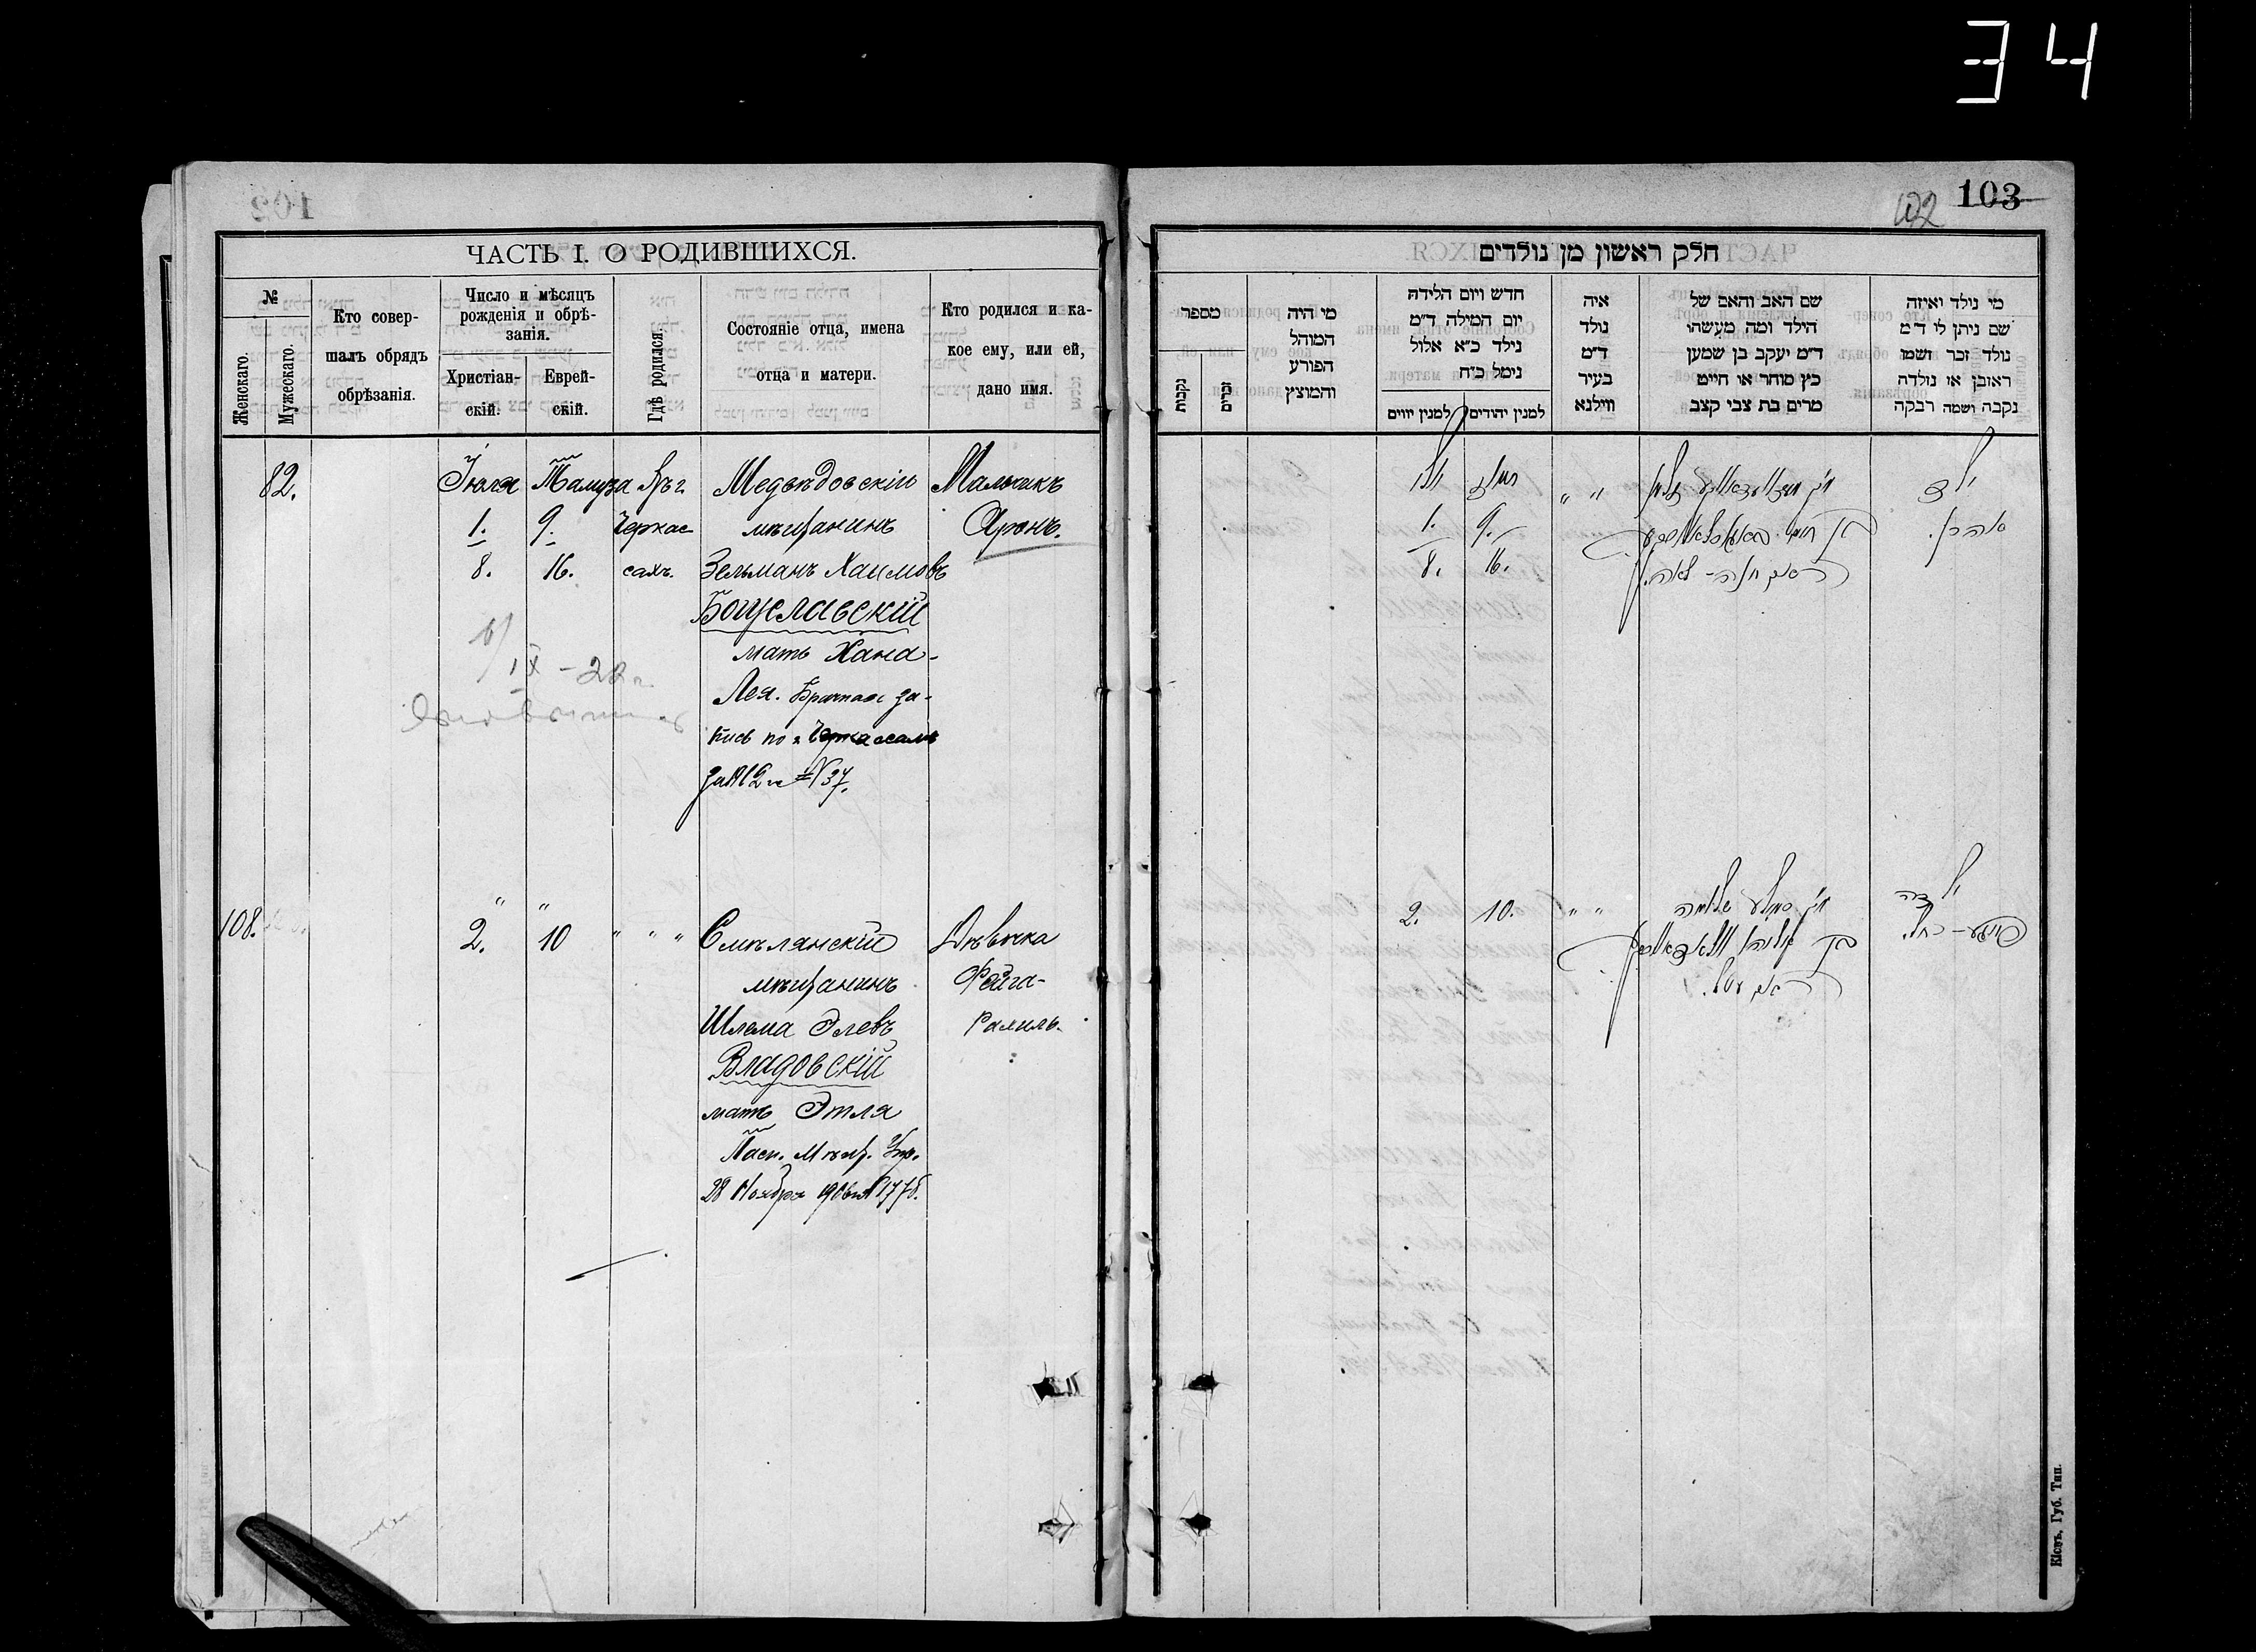 34
103
102
ЧАСТЬ I. О РОДИВШИХСЯ.
№
Женскаго.
Мужескаго.
Кто совер-
шалъ обрядъ
обрѣзанія.
Число и мѣсяцъ
рожденія и обрѣ-
занія.
Христіан-
скій.
Еврей-
скій.
Гдѣ родился.
Состояніе отца, имена
отца и матери.
Кто родился и ка-
кое ему, или ей,
дано имя.
82.
Іюля
1.
8.
Тамуза
9.
16.
Въ г.
Черкас
сахъ.
Медвѣдовскій
мѣщанинъ
Зельманъ Хаимовъ
Богуславскій
мать Хана-
Лея. Брачная за-
пись по г. Черкассамъ
за 1912 г. № 37.
Мальчикъ
Аронъ.
IX - 28 г.
108.
" "
2. 10
" " "
Смѣлянскій
мѣщанинъ
Шлема Элевъ
Владовскій
мать Этля
Пасп. Мѣщ. Упр.
28 Ноября 1906 г. №
Дѣвочка
Фейга-
Рахиль.
חלק ראשון מן נולדים
מספר
נקבות
זכרים
מי היה
המוהל
הפורע
והמוצץ
חדש ויום הלידה
יום המילה ד״מ
נילד כ״א אלול
נימל כ״ח
למנין יווים
למנין יהודים
איה
נולד
ד״מ
בעיר
ווילנא
שם האב והאם של
הילד ומה מעשהו
ד״מ יעקב בן שמען
כץ סוחר או חייט
מרים בת צבי קצב
מי נולד ואיזה
שם ניתן לו ד״מ
נולד זכר ושמו
ראובן או נולדה
נקבה ושמה רבקה
יולי
1.
8.
תמוז
9.
16.
" "
האם חנה-לאה.
ילד
אהרן.
2.
10.
" "
ילדה
פייגע-רחל.
Кіевъ, Губ. Тип.